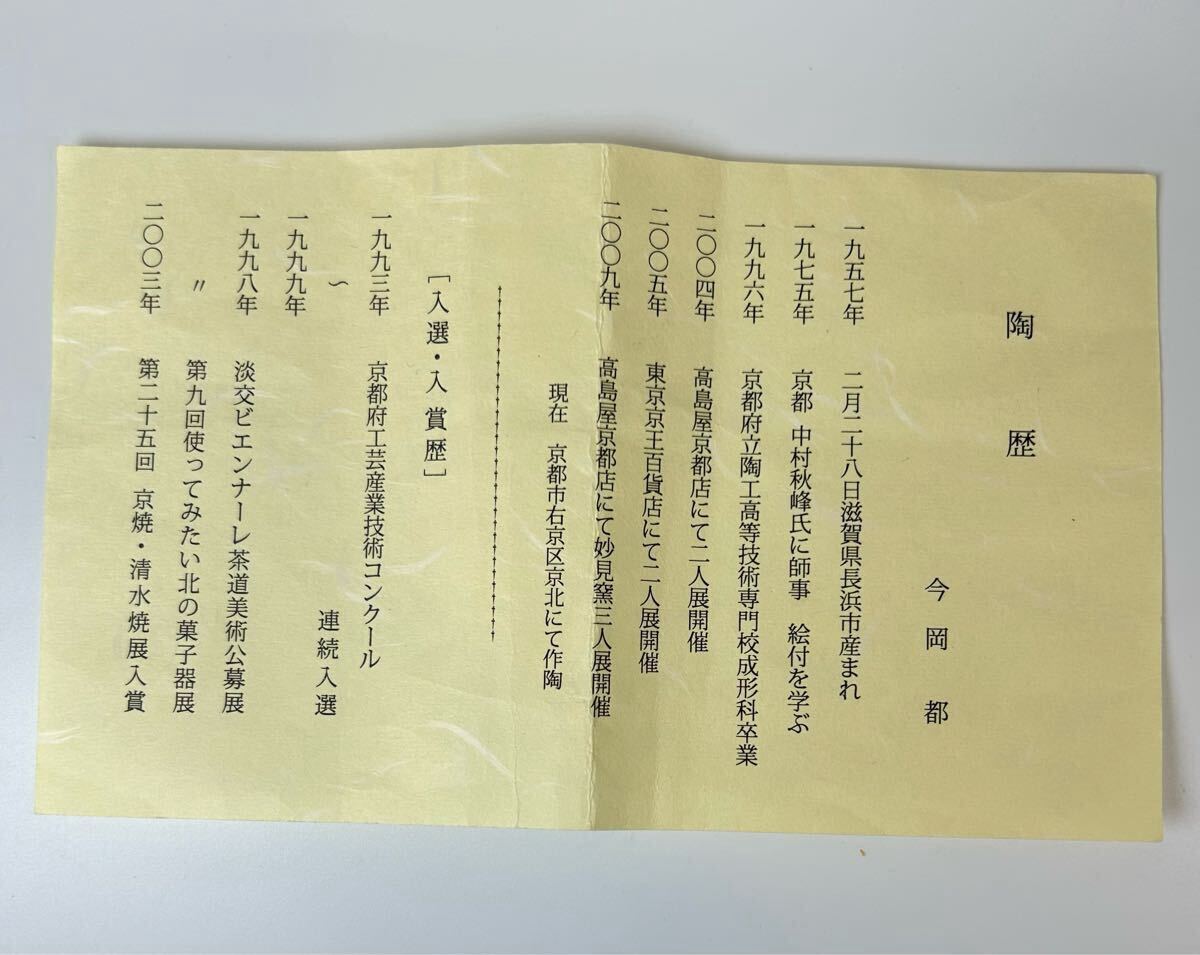 陶歴
今岡都
一九五七年 二月二十八日滋賀県長浜市産まれ
一九七五年 京都 中村秋峰氏に師事 絵付を学ぶ
一九九六年 京都府立陶工高等技術専門校成形科卒業
二〇〇四年 高島屋京都店にて二人展開催
二〇〇五年 東京京王百貨店にて二人展開催
二〇〇九年 高島屋京都店にて妙見窯三人展開催
現在 京都市右京区京北にて作陶
［入選・入賞歴］
一九九三年 京都府工芸産業技術コンクール
〜 連続入選
一九九九年
一九九八年 淡交ビエンナーレ茶道美術公募展
〃 第九回使ってみたい北の菓子器展
二〇〇三年 第二十五回 京焼・清水焼展入賞